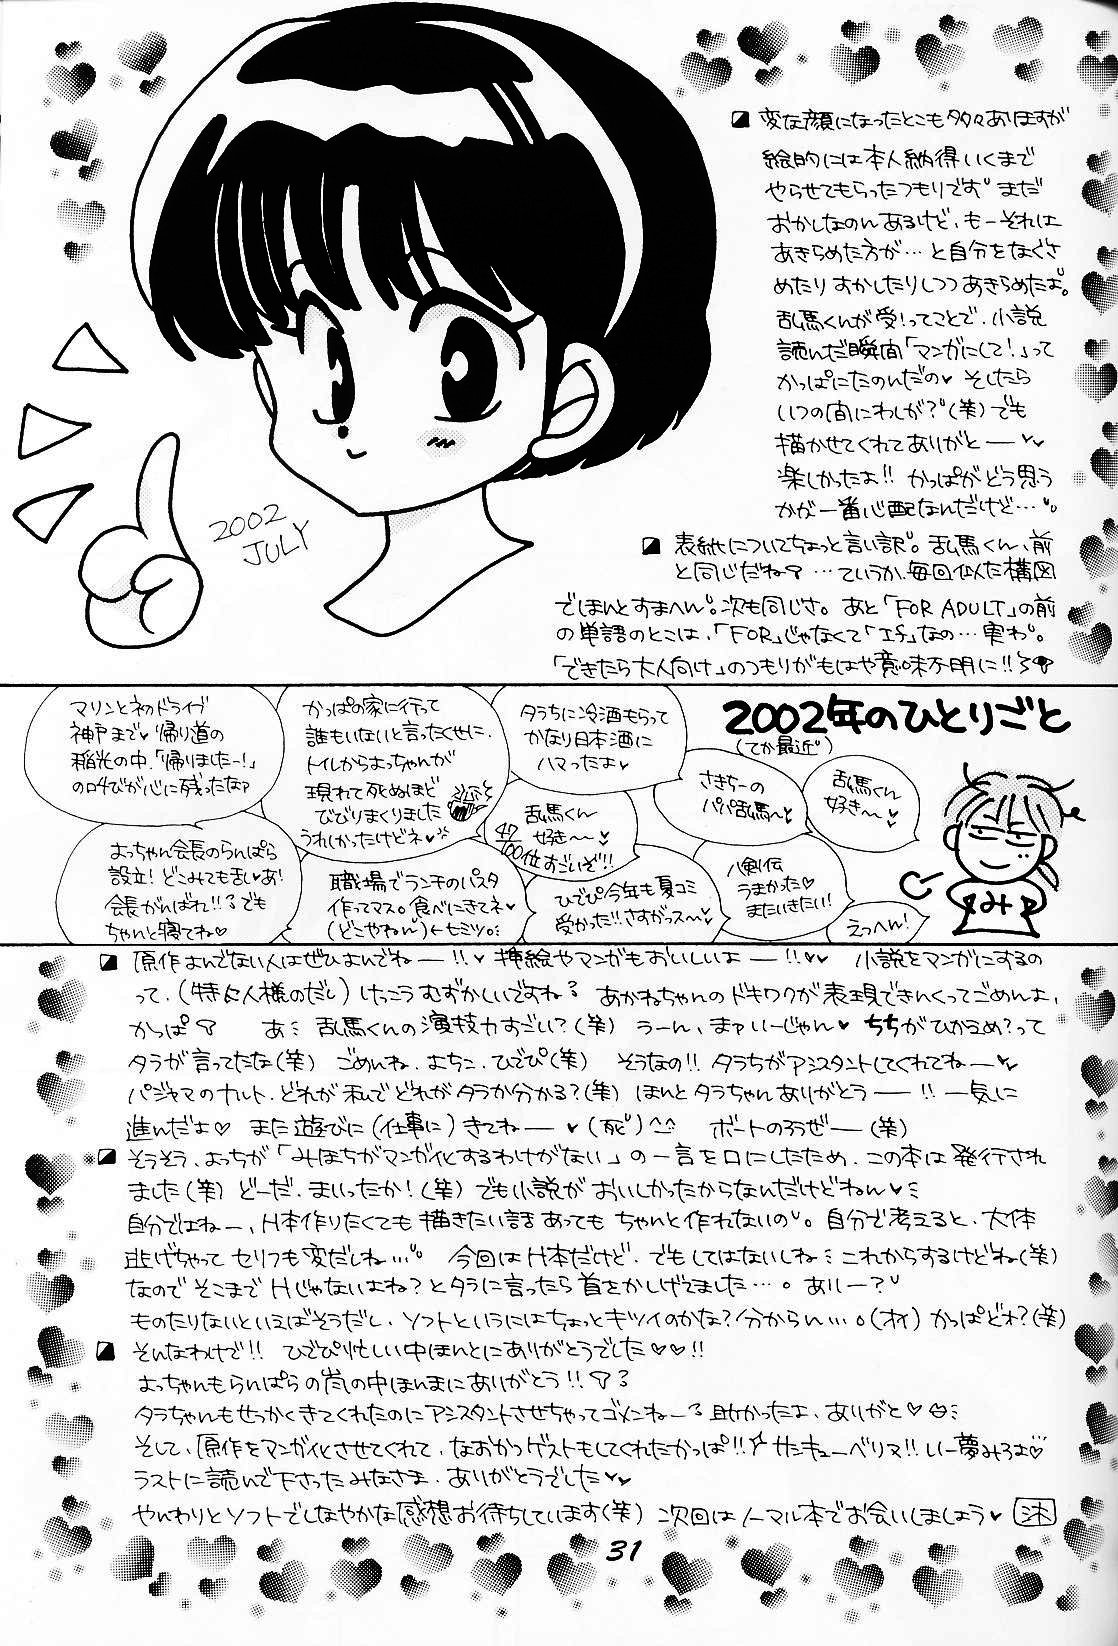 変な顔になったとこも多々ありますが
絵的には本人納得いくまで
やらせてもらったつもりです。まだ
おかしなのんあるけど、もーそれは
あきらめた方が…と自分をなぐさ
めたりおかしたりしつつあきらめたよ。
乱馬くんが受!ってことで、小説
読んだ瞬間「マンガにして!」って
かっぱにたのんだの♥ そしたら
いつの間にわしが?(笑)でも
描かせてくれてありがとー♥
楽しかったよ!! かっぱがどう思う
かが一番心配なんだけど…。
2002
JULY
表紙についてちょっと言い訳。乱馬くん、前
と同じだね? …ていうか、毎回似た構図
でほんとすまへん。次も同じさ。あと「FOR ADULT」の前
の単語のとこは、「FOR」じゃなくて「If」なの…実わ。
「できたら大人向け」のつもりがもはや意味不明に!!
2002年のひとりごと
(てか最近)
乱馬くん
好き〜♥
さきちーの
パパ乱馬〜
タラちに冷酒もらって
かなり日本酒に
ハマったよ♥
かっぱの家に行って
誰もいないと言ったくせに、
トイレからよっちゃんが
現れて死ぬほど
びびりまくりました
うれしかったけどネ♥
マリンとネのドライブ
神戸まで♥帰り道の
稲光の中、「帰りましたー!」
の叫びが心に残ったなァ
えっへん!
八剣伝
うまかった♥
またいきたい!
乱馬くん
好き〜♥
47/100位すごいぞ!!
ひでぴ今年も夏コミ
受かった!!さすがっス〜
職場でランチのパスタ
作ってマス。食べにきてネ♥
(どこやねん)←七ミツ。
よっちゃん会長のらんぱら
設立!どこみても乱♥あ!
会長がんばれ!!でも
ちゃんと寝てね♥
み
原作よんでない人はぜひよんでねー!!♥挿絵やマンガもおいしいよー!!♥♥ 小説をマンガにするの
って、(特に人様のだし)けっこうむずかしいですね? あかねちゃんのドキワクが表現できんくってごめんよ、
かっぱ あ… 乱馬くんの演技力すごい?(笑) うーん、まァいーじゃん♥ ちちがひかえめ?って
タラが言ってたな(笑) ごめんね、よちこ、ひでぴ(笑) そうなの!!タラちがアシスタントしてくれてねー♥
パジャマのナルト、どれが私でどれがタラか分かる?(笑) ほんとタラちゃんありがとうー!!一気に
進んだよ♡ また遊びに(仕事に)きてねー♥(死)^^ ボートのろうぜー(笑)
そうそう、よっちが「みほちがマンガ化するわけがない」の一言を口にしたため、この本は発行され
ました(笑) どーだ、まいったか!(笑)でも小説がおいしかったからなんだけどねん♥
自分ではねー、H本作りたくても描きたい話あってもちゃんと作れないの。自分で考えると、大体
逃げちゃってセリフも変だしね…。 今回はH本だけど、でもしてはないしね…これからするけどね(笑)
なのでそこまでHじゃないよね?とタラに言ったら首をかしげてました…。ありー?
ものたりないといえばそうだし、ソフトというにはちょっとキツイのかな?分からん…。(オイ)かっぱどォ?(笑)
そんなわけで!! ひでぴ忙しい中ほんとにありがとうでした♡♡!!
よっちゃんもらんぱらの嵐の中ほんまにありがとう!!
タラちゃんもせっかくきてくれたのにアシスタントさせちゃってゴメンねー 助かったよ、ありがと♡
そして、原作をマンガ化させてくれて、なおかつゲストもしてくれたかっぱ!!サンキューベリマ!!いー夢みろよ♡
ラストに読んで下さったみなさま、ありがとうでした♥♥
やんわりとソフトでしなやかな感想お待ちしています(笑) 次回はノーマル本でお会いしましょう♥
31